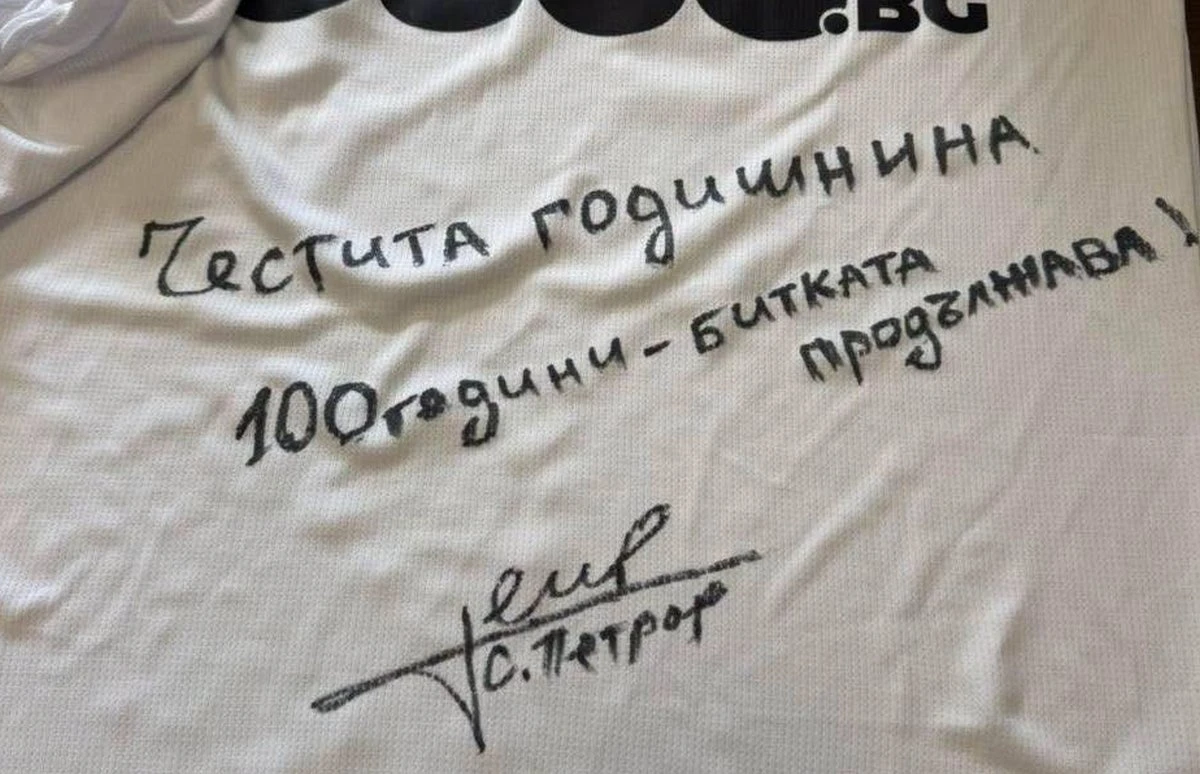 .BG
Честита годишнина
100 години - битката
продължава!
С. Петров